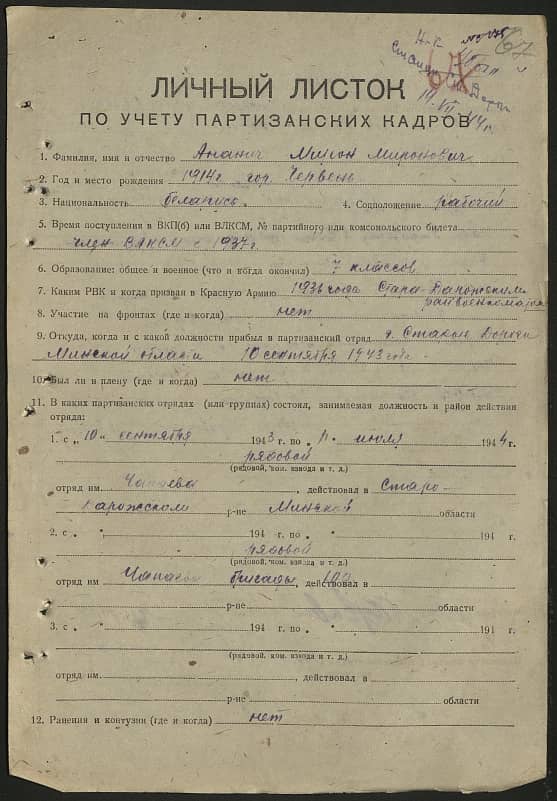 67
14.VII.44г.
ЛИЧНЫЙ ЛИСТОК
ПО УЧЕТУ ПАРТИЗАНСКИХ КАДРОВ
1. Фамилия, имя и отчество Ананич Мирон Миронович
2. Год и место рождения 1914 г. гор. Червень
3. Национальность беларус 4. Соцположение рабочий
5. Время поступления в ВКП(б) или ВЛКСМ, № партийного или комсомольского билета
член ВЛКСМ с 1937 г.
6. Образование: общее и военное (что и когда окончил) 7 классов
7. Каким РВК и когда призван в Красную Армию 1936 года Старо-Дарожским
райвоенкоматом
8. Участие на фронтах (где и когда) нет
9. Откуда, когда и с какой должности прибыл в партизанский отряд г. Старые Дороги
Минской области 10 сентября 1943 года
10. Был ли в плену (где и когда) нет
11. В каких партизанских отрядах (или группах) состоял, занимаемая должность и район действия
отряда:
1. с „10" сентября 1943 г. по „ июля 1944 г.
рядовой
(рядовой, ком. взвода и т. д.)
отряд им Чапаева, действовал в Старо-
Дарожском р-не Минской области
2. с „ " 194 г. по „ " 194 г.
рядовой
(рядовой, ком. взвода и т. д.)
отряд им Чапаева бригады, действовал в
р-не области
3. с „ " 194 г. по „ " 194 г.
(рядовой, ком. взвода и т. д.)
отряд им., действовал в
р-не области
12. Ранения и контузии (где и когда) нет